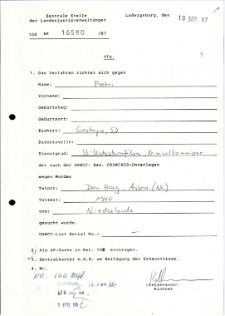 Zentrale Stelle
der Landesjustizverwaltungen
Ludwigsburg, den 10 SEP. 87
108 AR 16580 /87
Vfg.
1
1. Das Verfahren richtet sich gegen
Name:
Vorname:
Geburtstag:
Geburtsort:
Einheit: Gestapo, SD
Dienststelle:
Dienstgrad: SS-Untersturmführer, Kriminalkommissar
der nach der UNWCC- bzw. CROWCASS-Unterlagen
wegen Mordes
Tatort: Den Haag, Assen (NL)
Tatzeit: 1940
von Niederlande
gesucht wurde.
UNWCC-List Serial No.:
2. Als AR-Sache in Ref. 108 eintragen.
3. Zentralkartei m.d.B. um Beifügung der Erkenntnisse.
4. Wv.